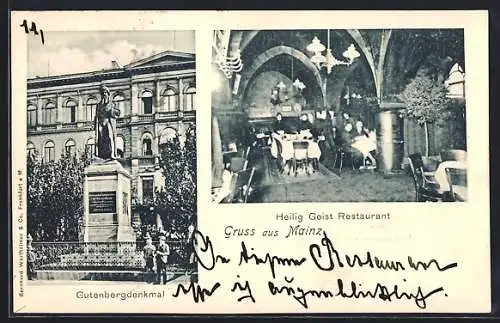 Heilig Geist Restaurant
Gruss aus Mainz.
In diesem Restaurant
ich augenblicklich.
Gutenbergdenkmal
Bernhard Wertheimer & Co, Frankfurt a M